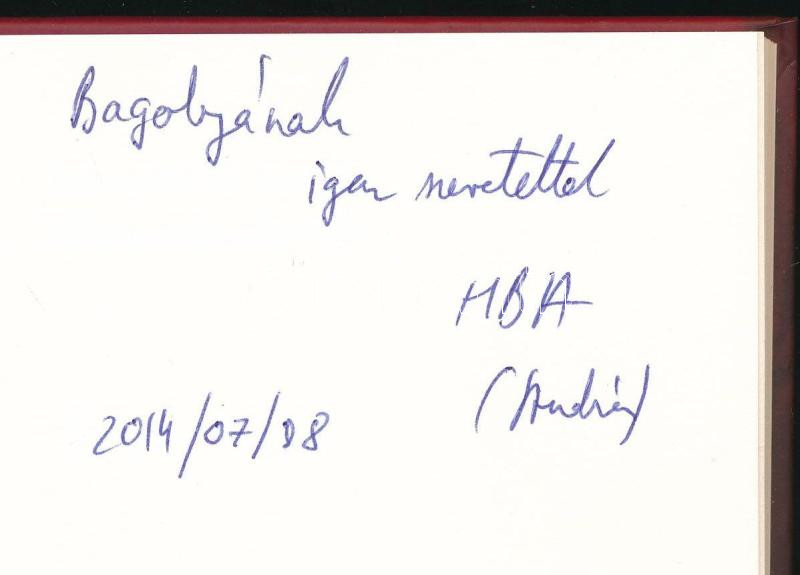 Bagolyának
igen szeretettel
HBA
(András)
2014/07/08